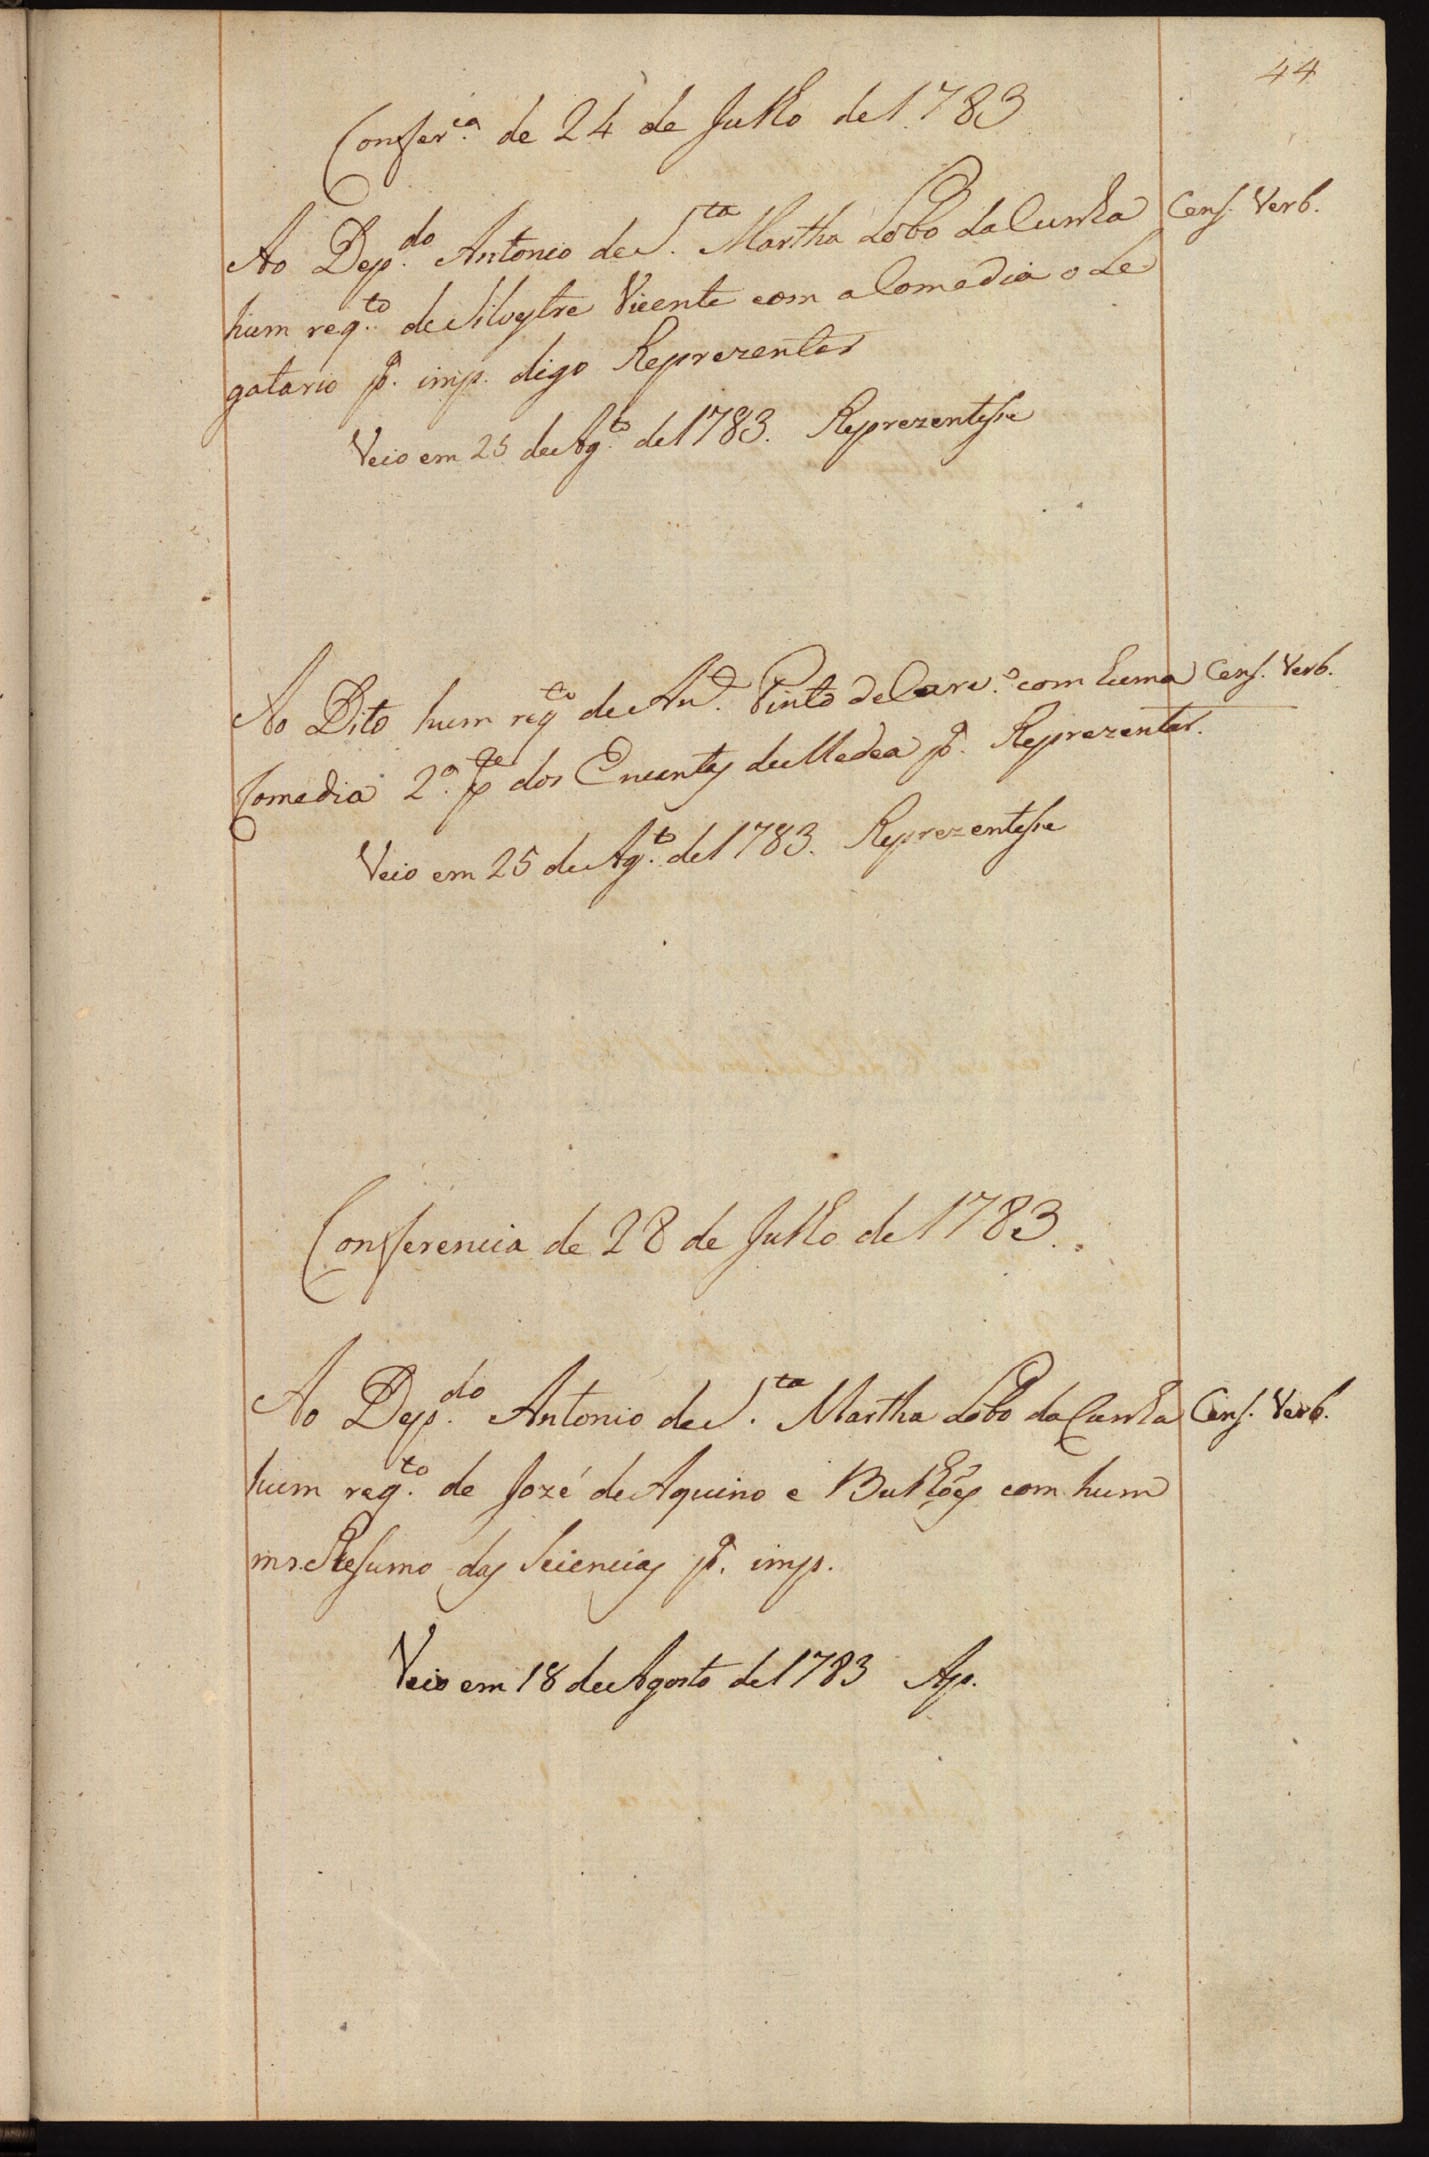 44
Confer.ca de 24 de Julho de 1783
Ao Dep.do Antonio de S.ta Martha Lobo da Cunha Cens. Verb.
hum req.to de Silvestre Vicente com a Comedia o Le
gatario p.a imp. digo Reprezentar
Veio em 25 de Ag.to de 1783. Reprezentesse
Ao Dito hum req.to de Ant.o Pinto de Carv.o com huma Cens. Verb.
Comedia 2.a p.te dos Encantos de Medea p.a Reprezentar.
Veio em 25 de Ag.to de 1783. Reprezentesse
Conferencia de 28 de Julho de 1783.
Ao Dep.do Antonio de S.ta Martha Lobo da Cunha Cens. Verb.
hum req.to de Jozé de Aquino e Bulhões com hum
ms. Resumo das Sciencias p.a imp.
Veio em 18 de Agosto de 1783 Ap.